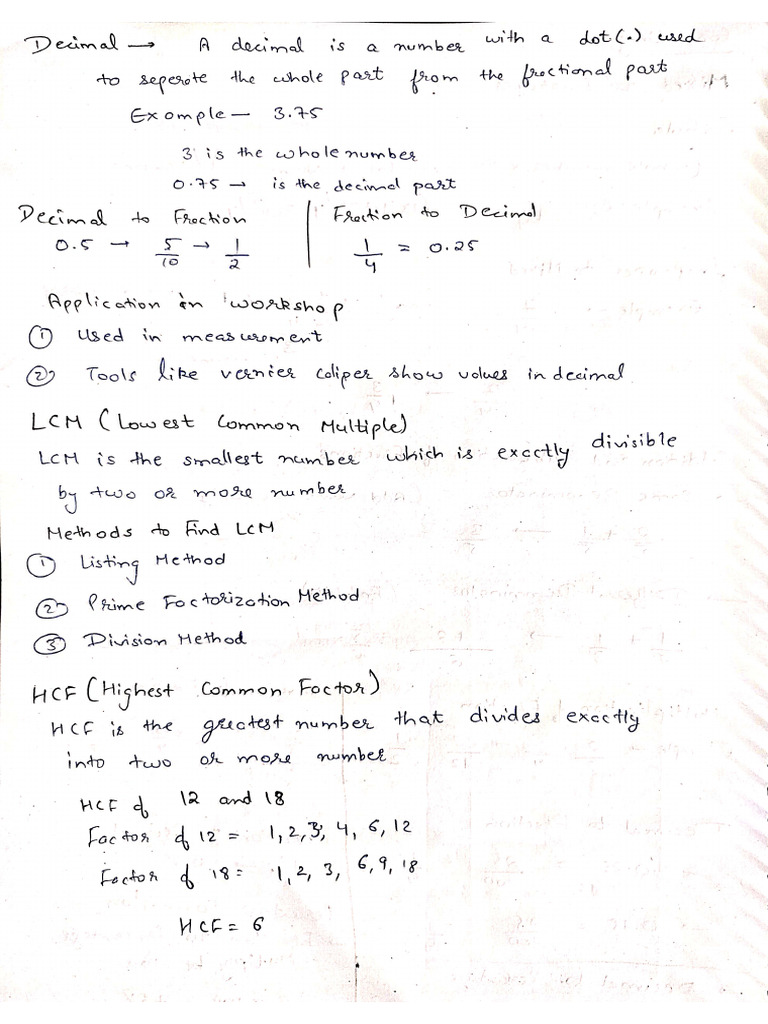 Decimal → A decimal is a number with a dot(.) used
to seperate the whole part from the fractional part
Example — 3.75
3 is the whole number
0.75 → is the decimal part
Decimal to Fraction | Fraction to Decimal
0.5 → 5/10 → 1/2 | 1/4 = 0.25
Application in workshop
① Used in measurement
② Tools like vernier caliper show values in decimal
LCM (Lowest Common Multiple)
LCM is the smallest number which is exactly divisible
by two or more number
Methods to Find LCM
① Listing Method
② Prime Factorization Method
③ Division Method
HCF (Highest Common Factor)
HCF is the greatest number that divides exactly
into two or more number
HCF of 12 and 18
Factor of 12 = 1, 2, 3, 4, 6, 12
Factor of 18 = 1, 2, 3, 6, 9, 18
HCF = 6